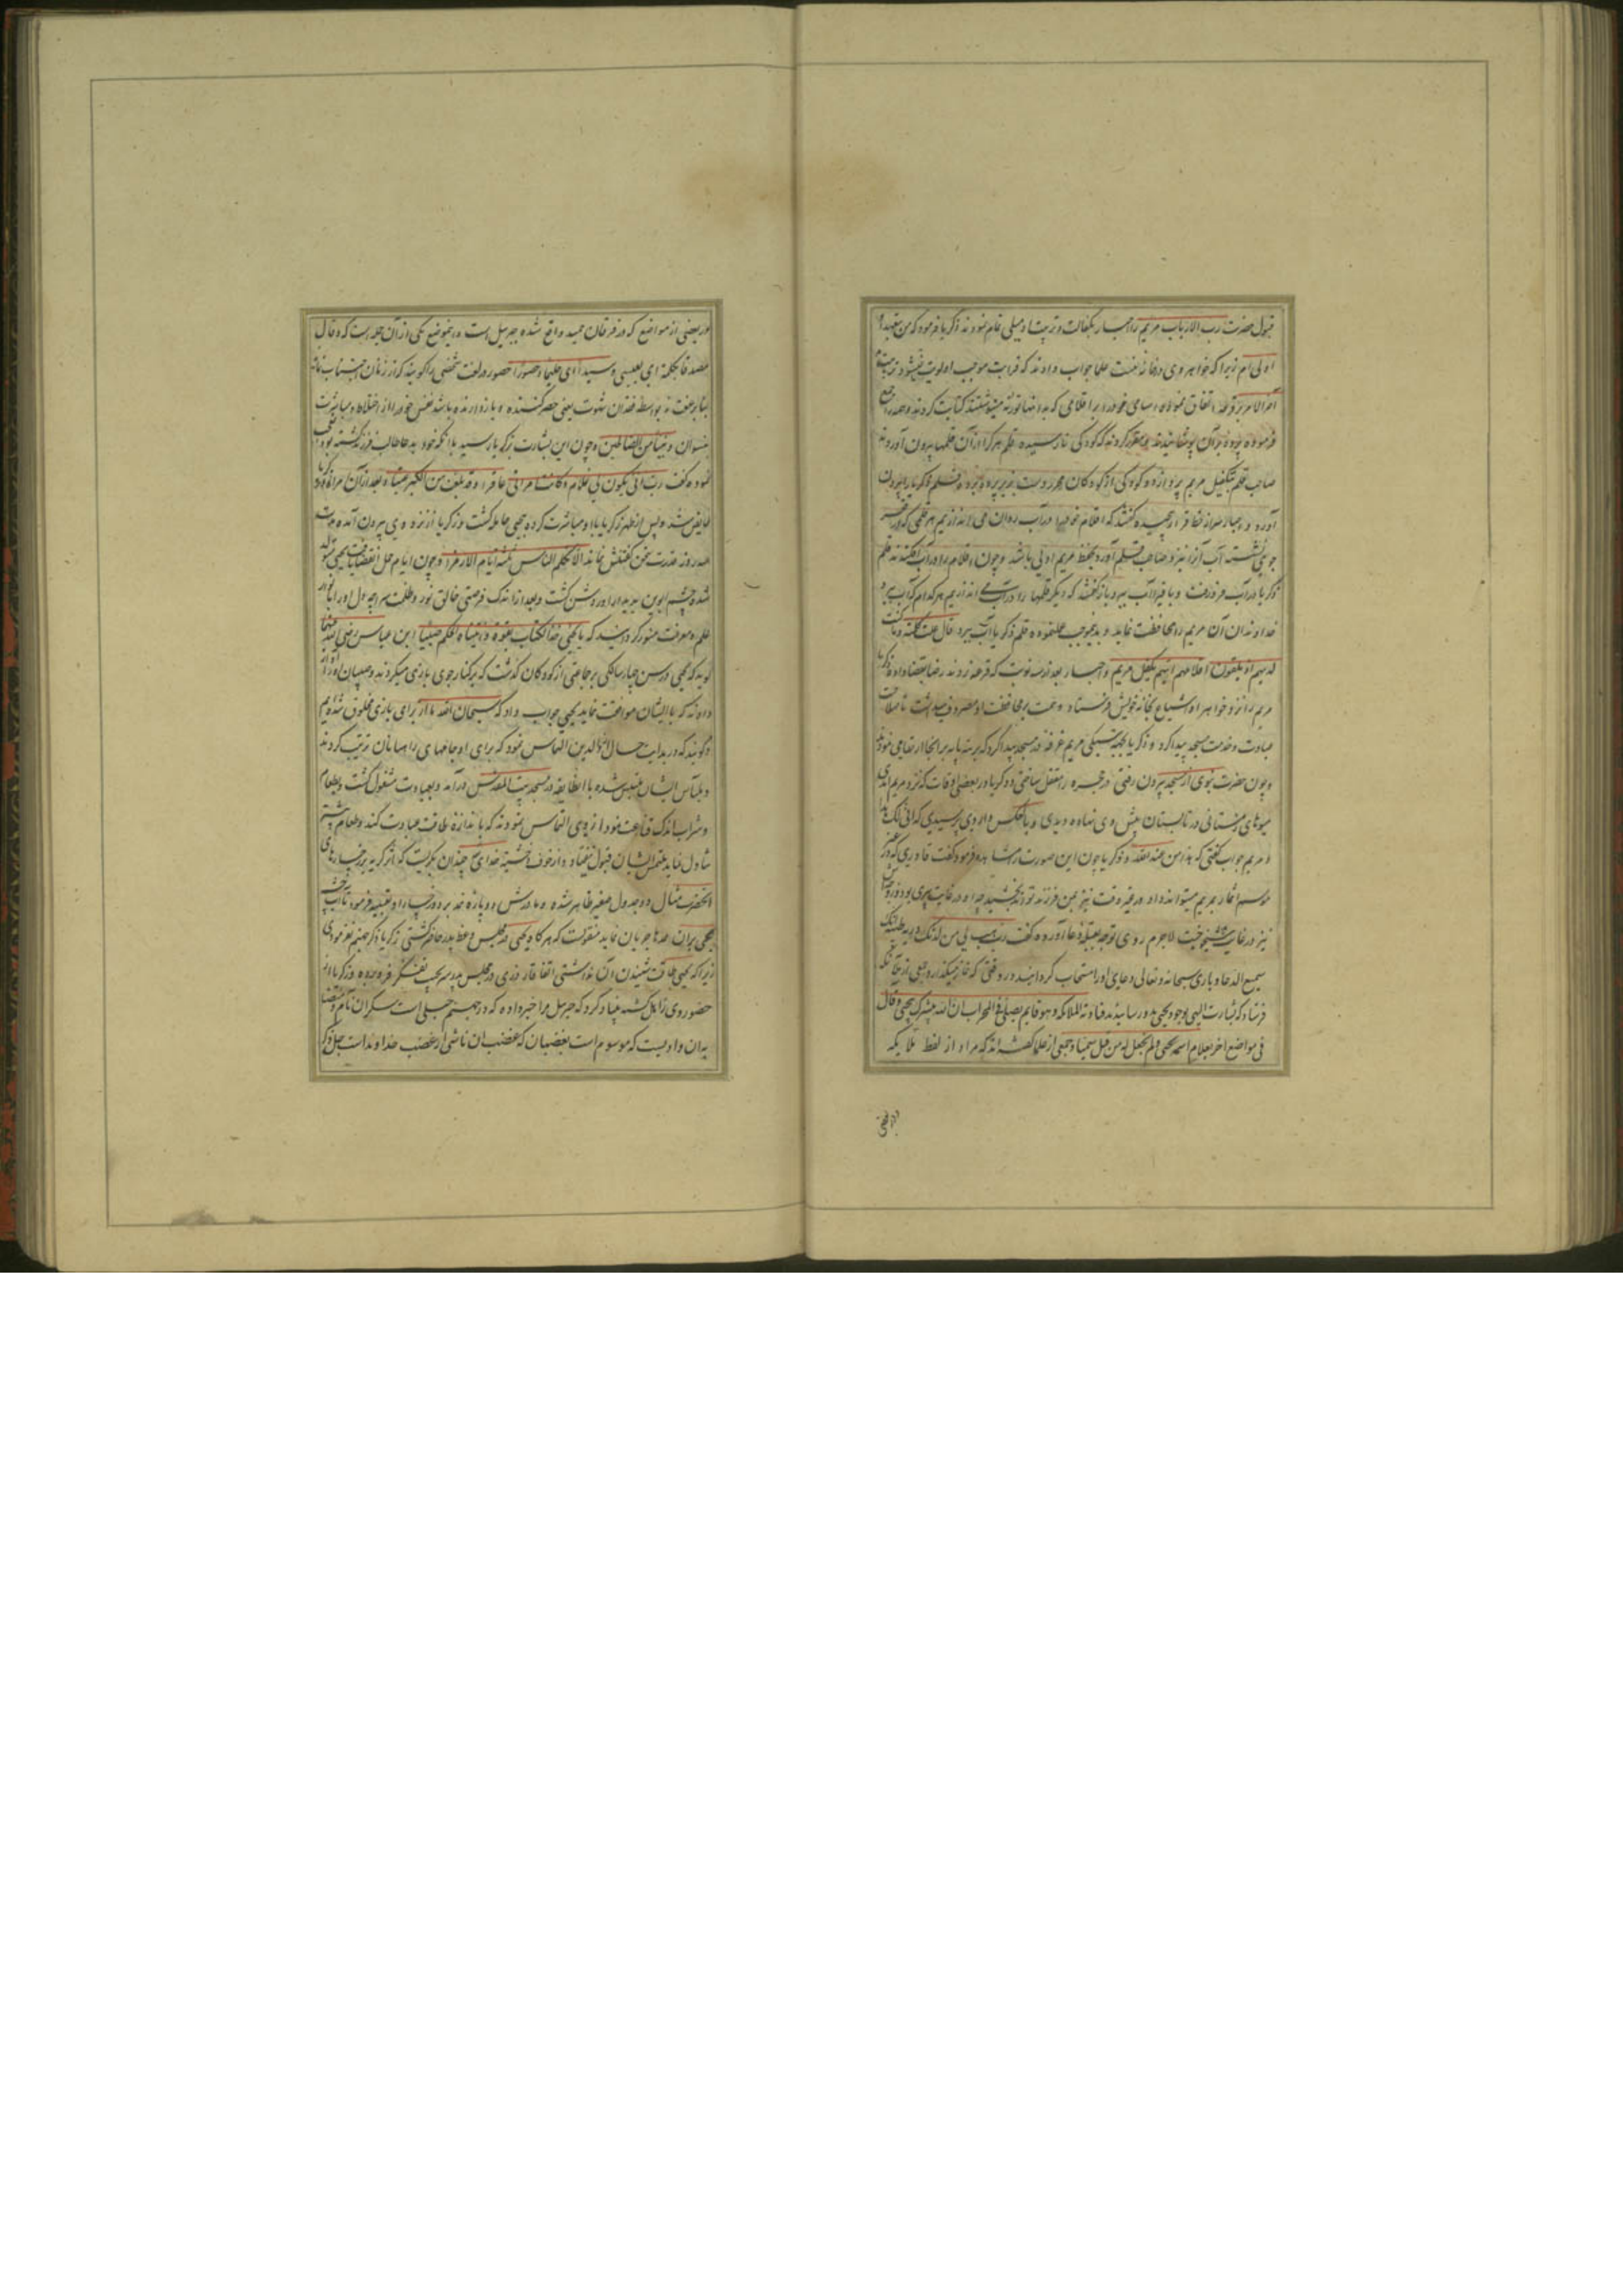 قبول حضرت رب الارباب مریم را احبار بکفالت و تربیت او میلی تمام نمودند زکریا فرمود که من بتعهد او
اولی ام زیرا که خواهر وی در خانه منست علما جواب دادند که قرابت موجب اولویت
آخر الامر بر قرعه اتفاق نموده اسامی خود را بر اقلامی که بدانها توریة مینوشتند کتابت کردند و همه را جمع
فرموده برده بر آن پوشانیدند مقرر کردند که کودکی نارسیده قلم هر کرا از آن قلمها بیرون آورد
صاحب قلم بتکفیل مریم پردازد و کودکی از کودکان محرر دست بزیر پرده برده قلم زکریا را بیرون
آورد و احبار سر از خط قرار پیچیده گفتند که اقلام خود را در آب روان می اندازیم هر قلمی که بر
جوی نشست آب آنرا نبرد صاحب قلم آورد بحفظ مریم اولی باشد و چون اقلام را در آب افکندند قلم
زکریا در آب فرو رفت و باقی را آب ببرد باز گفتند که دیگر قلمها را در آب می اندازیم هر کدام که آب ببرد
خداوندان آن مریم را محافظت نماید و بدینموجب عمل نموده قلم زکریا آب ببرد قال عمت کلمته و ما کنت
لدیهم اذ یلقون اقلامهم ایهم یکفل مریم و احبار بعد از سه نوبت که قرعه زدند رضا بقضا داده زکریا
مریم را نزد خواهر او اشیاع بخانه خویش فرستاد و همت بر محافظت او مصروف میداشت تا صلاحیت
عبادت و خدمت مسجد پیدا کرد و زکریا بجهة مریم غرفه در مسجد پیدا کرد که بر سه پایه بر آنجا ارتقا می نمودند
و چون حضرت نبوی از مسجد بیرون رفتی در حجره را مقفل ساختی و زکریا در بعضی اوقات که نزد مریم آمدی
میوهای زمستانی در تابستان پیش وی نهاده دیدی و بالعکس و از وی پرسیدی که انی لک هذا
و مریم جواب گفتی که هذا من عند الله و زکریا چون این صورت مشاهده فرمود گفت قادری که در غیر
موسم اثمار بمریم میتواند داد در غیر وقت نیز بمن فرزند تواند بخشید چه او در غایت پیری بود و زوجه اش
نیز در غایت شیخوخیت لاجرم روی توجه بقبله دعا آورده گفت رب هب لی من لدنک ذریه طیبه انک
سمیع الدعا و باری سبحانه و تعالی دعای او را مستجاب گردانید در وقتی که نماز میگذارد جمعی از ملائکه
فرستاد که بشارت الهی بوجود یحیی بدو رسانیدند فنادته الملائکه و هو قایم یصلی فی المحراب ان الله یبشرک بیحیی و قال
فی مواضع اخر بغلام اسمه یحیی لم نجعل له من قبل سمیا و جمعی از علما گفته اند که مراد از لفظ ملایکه
در بعضی
در بعضی از مواضع که در فرقان مجید واقع شده جبرئیل است و اینموضع یکی از آن جمله است که و قال
مصدقا بکلمة ای بعیسی و سیدا ای حلیما و حصورا حصور در لغت شخصی را گویند که از زنان اجتناب نماید
بنا بر عفت نه بواسطه فقدان شهوت یعنی حصر کننده و باز دارنده باشد نفس خود را از اختلاط و مباشرت
نسوان و نبیا من الصالحین و چون این بشارت بزکریا رسید با آنکه خود بدعا طالب فرزند گشته بود
نموده گفت رب انی یکون لی غلام و کانت امراتی عاقرا و قد بلغت من الکبر عتیا و بعد از آن
فایض شد و پس از طهر زکریا با او مباشرت کرده بیحیی حامله گشت و زکریا از نزد وی بیرون آمده مدت
سه روز قدرت سخن گفتنش نماند الا تکلم الناس ثلثة ایام الا رمزا و چون ایام حمل انقضا یافت یحیی متولد
شد و چشم ابوین بدیدار او روشن گشت و بعد از اندک فرصتی خالق نور و ظلمت سراچه دل او را بانوار
علم و معرفت منور گردانید که یا یحیی خذ الکتاب بقوة و آتیناه الحکم صبیا ابن عباس رضی الله عنهما
گوید که یحیی در سن چهار سالگی بر جماعتی از کودکان گذشت که بر کنار جوی بازی میکردند و صبیان او را آواز
دادند که با ایشان موافقت نماید یحیی جواب داد که سبحان الله ما از برای بازی مخلوق شده ایم
و گویند که در بدایت حال از والدین التماس نمود که برای او جامهای راهبانان ترتیب کردند
و بلباس ایشان ملبس شده با آنطایفه در مسجد بیت المقدس درآمد و بعبادت مشغول گشت و بطعام
و شراب اندک قناعت نمود از وی التماس نمودند که باندازه طاقت عبادت کند و طعام بیشتر
تناول نماید ملتمس ایشان قبول نیفتاد و از خوف و خشیة خدای چندان بگریست که اثر گریه بر رخسارهای
آنحضرت مثال دو جدول صغیر ظاهر شده و مادرش دو پاره نمد بر دو رخساره او تعبیه فرمود تا آب چشم
یحیی بر آن نمدها جریان نماید منقولست که هر گاه یحیی در مجلس وعظ پدر حاضر گشتی زکریا ذکر جهنم نفرمودی
زیرا که یحیی طاقت شنیدن آن نداشتی اتفاقا روزی در مجلس پدر سر بجیب تفکر فرو برده و زکریا از
حضور وی زاهل گشته بنیاد کرد که جبرئیل مرا خبر داده که در جهنم جبلی است سکران نام و
بدان وادیست که موسوم است بغضبان که غضب آن ناشی از غضب خداوند است جل ذکره